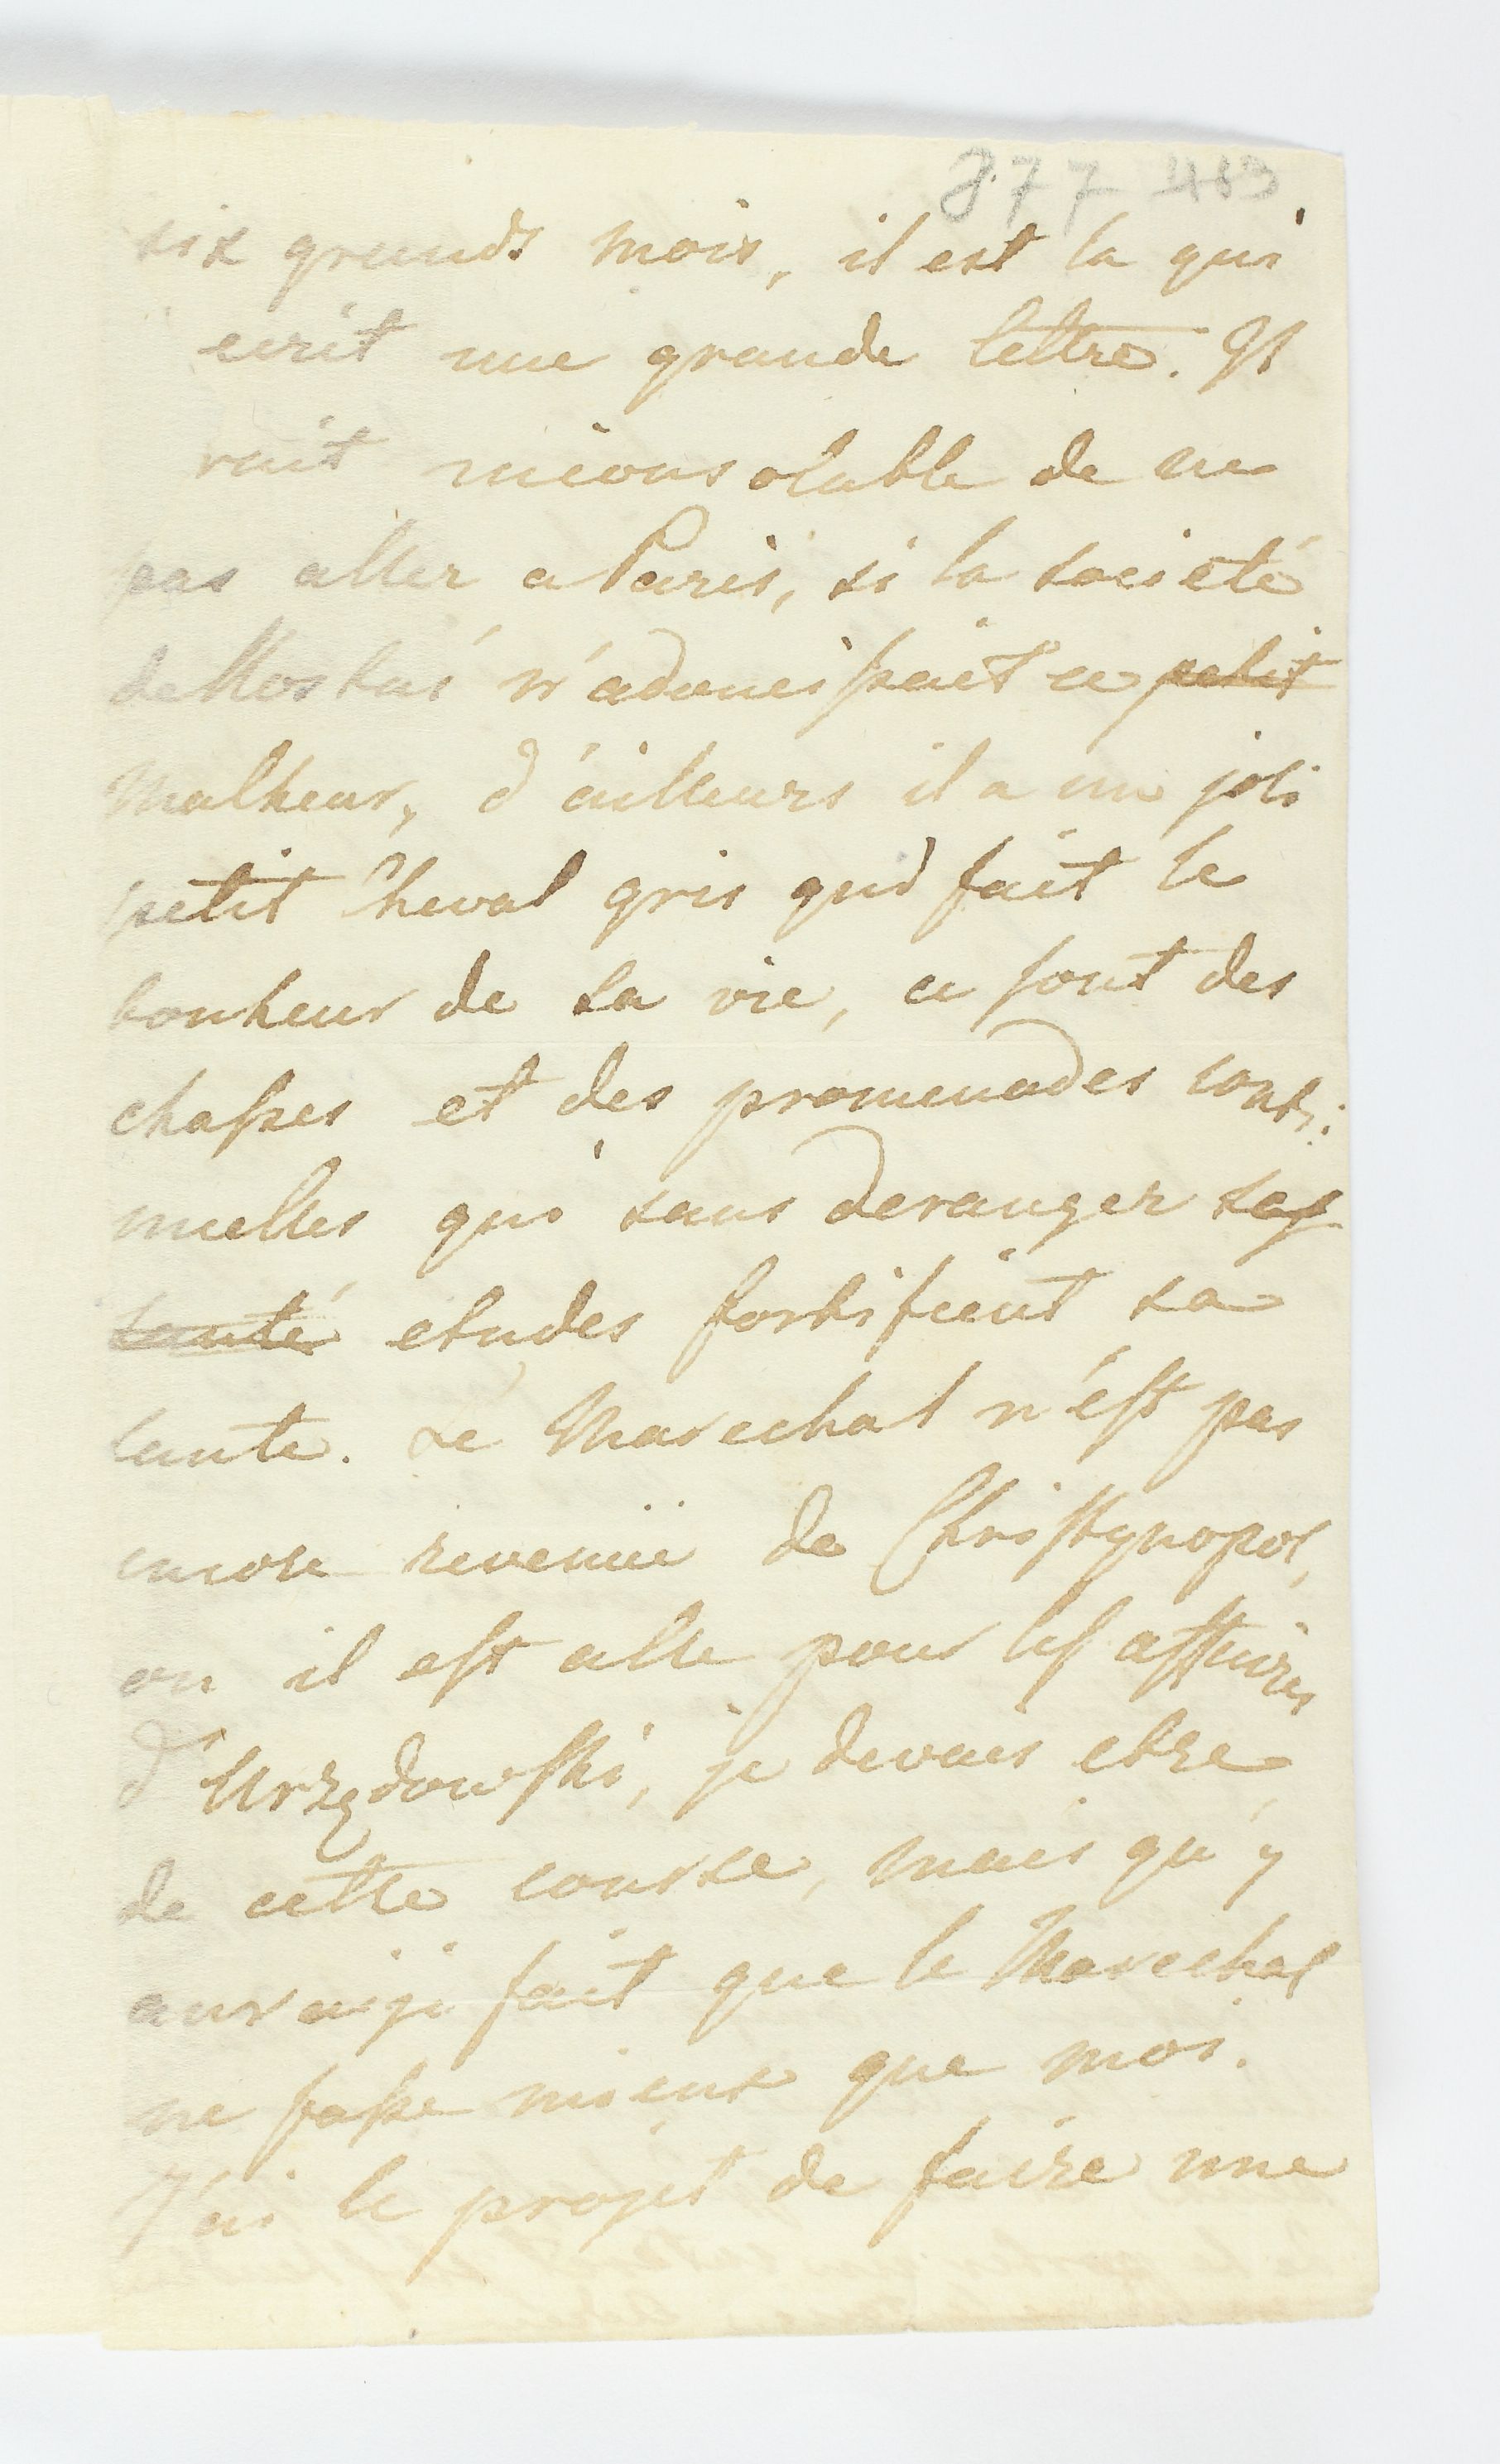 877 483
six grands mois, il est la qui
ecrit une grande lettre. Il
rait inconsolable de ne
pas aller a Paris, si la societé
de n'adoucissait ce petit
Malheur, d'ailleurs il a un joli
petit cheval gris qui fait le
bonheur de sa vie, ce sont des
chasses et des promenades conti:
nuelles qui sans deranger ses
santé etudes fortifient sa
sante. Le Marechal n'est pas
encore revenüe de Christynopol,
ou il est alle pour les affaires
d'Urzędowski, je devais etre
de cette course, mais qu'y
aurai je fait que le Marechal
ne fasse mieux que moi.
J'ai le projet de faire une